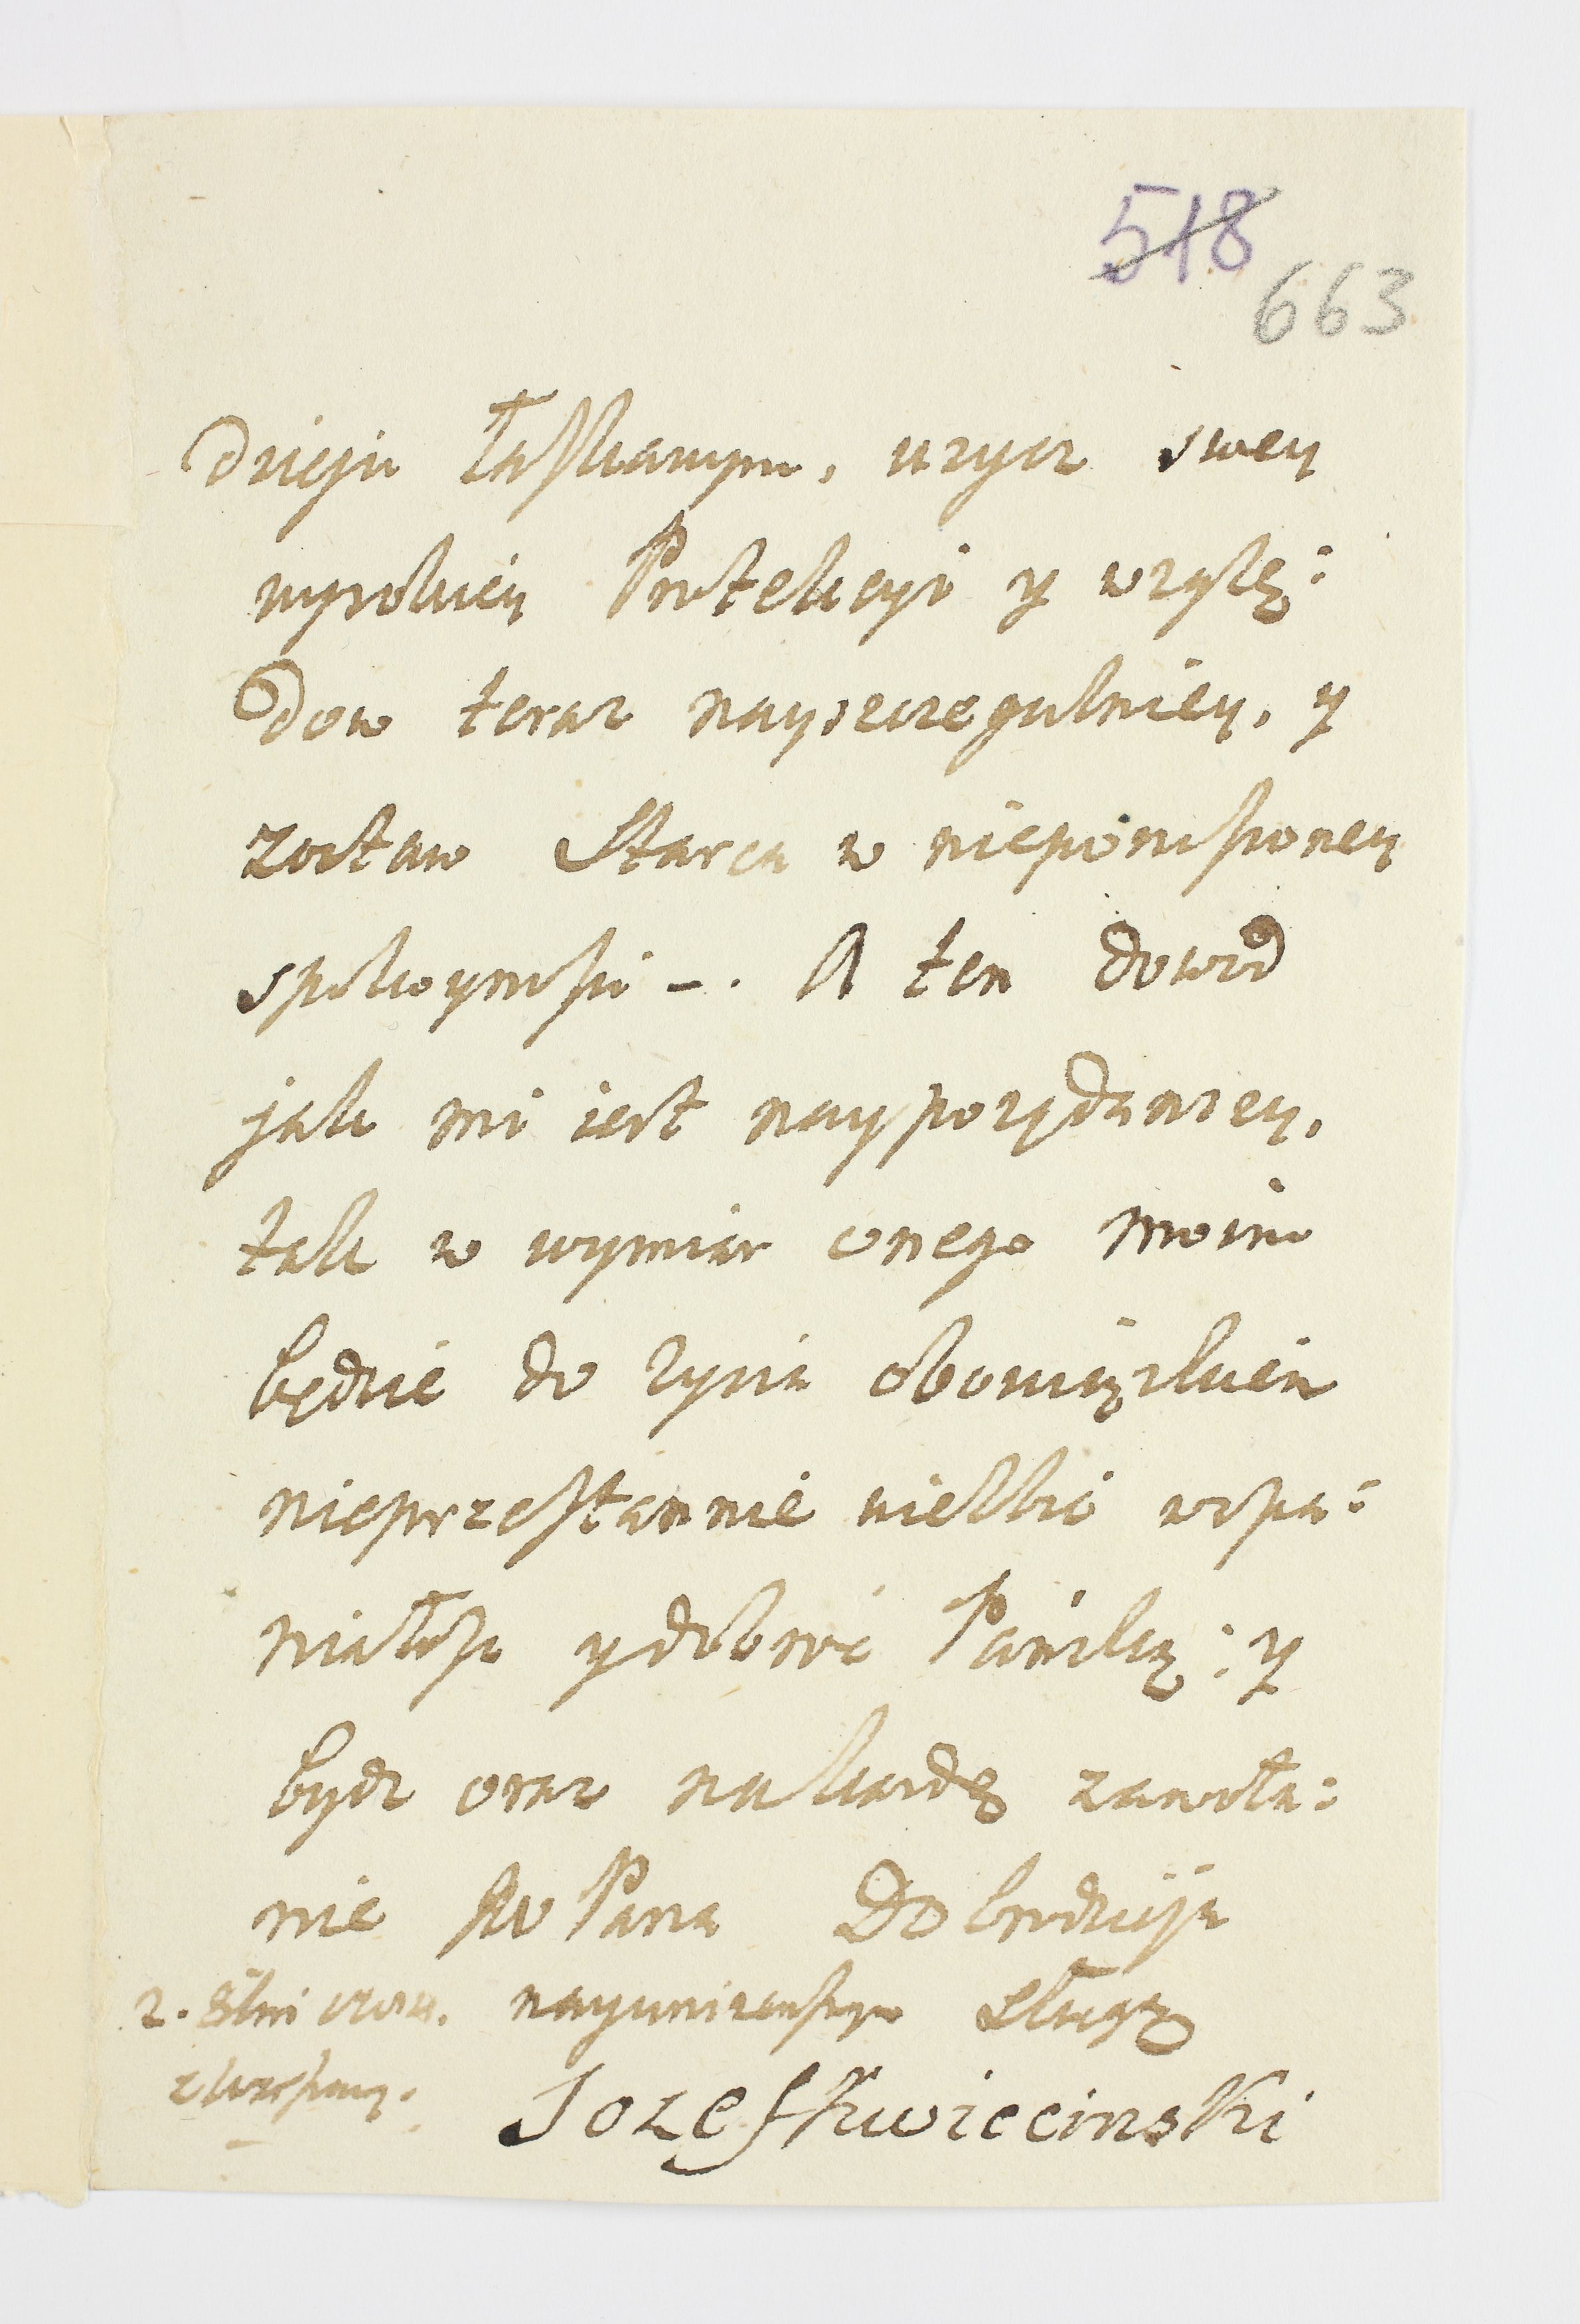 518
663
dzieju łaskawym, uzycz swey
wysokiey Protekcyi y wzglę:
dow teraz nayszczegulniey, y
zostaw Starca w nieporuszoney
spokoynosci –. A ten dowod
jak mi iest naypożądanszy,
tak w wymiar onego moim
będzie do zycia obowiązkiem
nieprzestannie wielbić wspa:
niałość y dobroć Pańską: y
bydz oraz na każdę zawoła:
nie JW Pana Dobrodzieja
nayunizenszym sługą
Jozef Kwiecinski